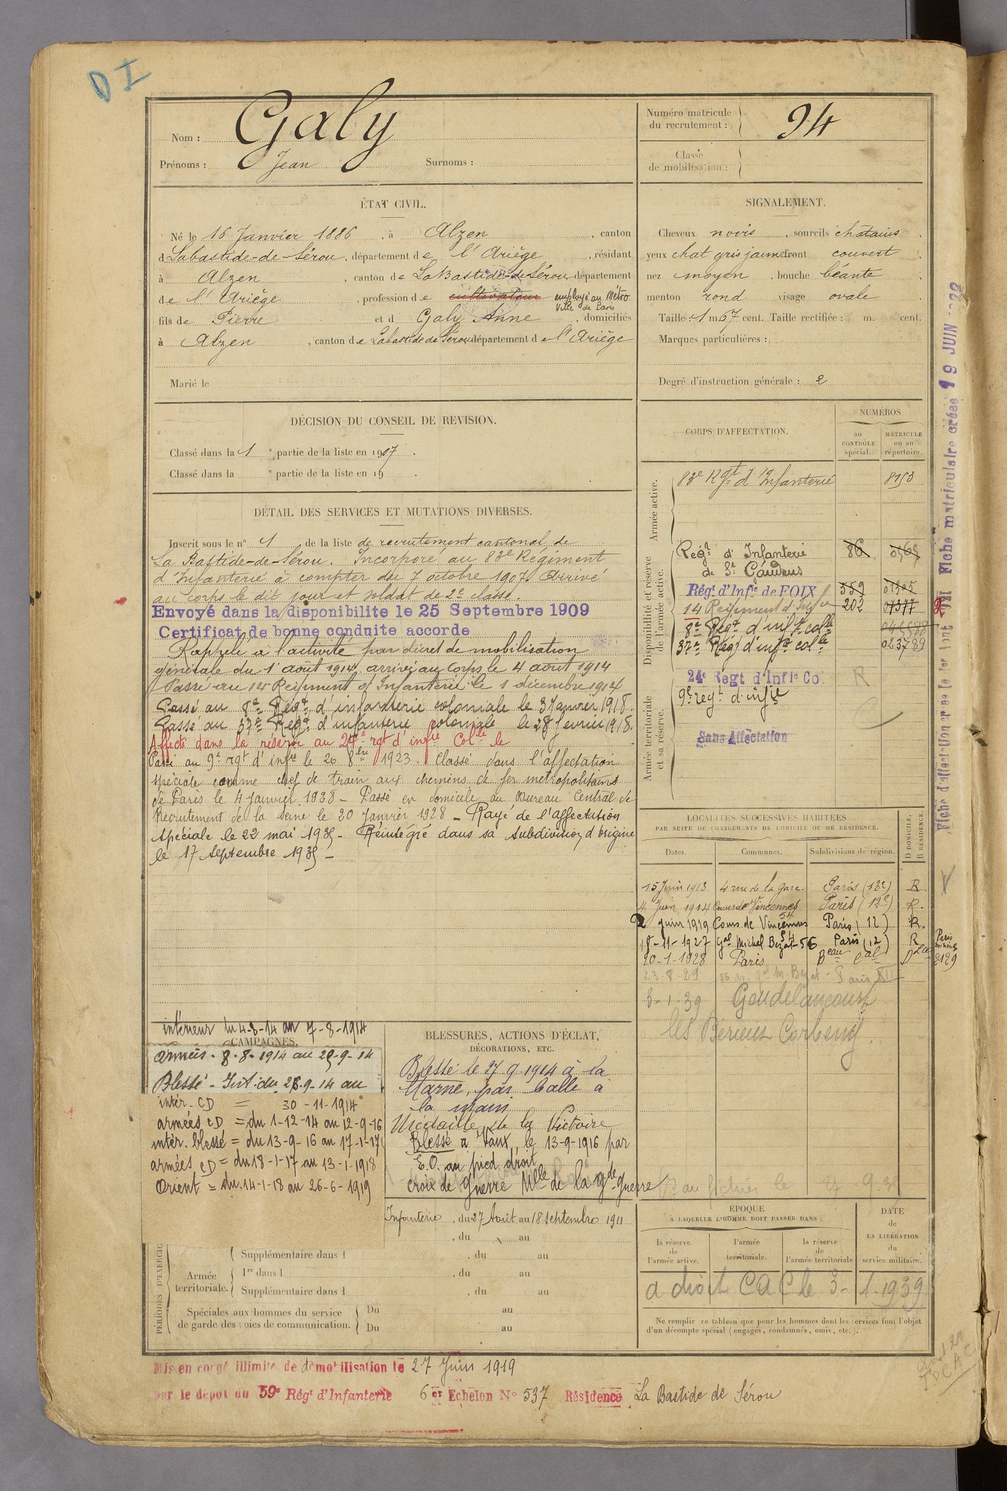 DI
Nom : Galy
Prénoms : Jean Surnoms :
Numéro matricule du recrutement : 94
Classe de mobilisation :
ÉTAT CIVIL.
Né le 16 Janvier 1886, à Alzen, canton
d Labastide-de-Sérou, département de l'Ariège, résidant
à Alzen, canton de LaBastide-de-Sérou département
de l'Ariège, profession de cultivateur employé au Métro
Ville de Paris
fils de Pierre et d Galy Anne, domiciliés
à Alzen, canton de Labastide de Sérou département de l'Ariège
Marié le
SIGNALEMENT.
Cheveux noirs, sourcils chatains
yeux chat gris jaune front couvert
nez moyen, bouche béante
menton rond visage ovale
Taille : 1 m 67 cent. Taille rectifiée : m. cent.
Marques particulières :
Degré d'instruction générale : 2
DÉCISION DU CONSEIL DE REVISION.
Classé dans la 1 e partie de la liste en 1907.
Classé dans la e partie de la liste en 19
DÉTAIL DES SERVICES ET MUTATIONS DIVERSES.
Inscrit sous le n° 1 de la liste de recrutement cantonal de
La Bastide-de-Sérou. Incorporé au 83e Régiment
d'Infanterie à compter du 7 octobre 1907. Arrivé
au corps le dit jour et soldat de 2e classe.
Envoyé dans la disponibilite le 25 Septembre 1909
Certificat de bonne conduite accorde
Rappelé à l'activité par décret de mobilisation
générale du 1 août 1914, arrivé au corps le 4 août 1914
Passé au 14 Régiment d'Infanterie le 1 décembre 1914
Passé au 8e Régt d'infanterie coloniale le 3 Janvier 1918.
Passé au 37e Régt d'infanterie coloniale le 28 février 1918.
Affecté dans la réserve au 24e rgt d'infie Colle le
Passé au 9e rgt d'infie le 20 8bre 1923. Classé dans l'affectation
spéciale comme chef de train aux chemins de fer métropolitains
de Paris le 4 Janvier 1938 - Passé en domicile au Bureau Central de
Recrutement de la Seine le 20 Janvier 1928 - Rayé de l'affectation
spéciale le 22 mai 1935 - Réintégré dans sa subdivision d'origine
le 17 septembre 1935 -
CORPS D'AFFECTATION.
NUMÉROS
au CONTRÔLE spécial.
MATRICULE ou au répertoire.
Armée active.
83e Rgt d'Infanterie 8153
Disponibilité et réserve de l'armée active.
Régt d'Infanterie 86
de St Gaudens
Régt d'Infie de FOIX 559
14 Régiment d'Infie 202
8e Régt d'infie colle
37e Régt d'infie colle 023789
24e Regt d'Infie Co.
Armée territoriale et sa réserve.
R
9e regt d'infie
Sans Affectation
LOCALITÉS SUCCESSIVES HABITÉES
PAR SUITE DE CHANGEMENTS DE DOMICILE OU DE RÉSIDENCE.
Dates. Communes. Subdivisions de région. D DOMICILE. R RÉSIDENCE.
15 Juin 1913 4 rue de la gare Paris (12e) R
4 Juin 1914 Cours de Vincennes Paris (12e) R.
2 juin 1919 Cours de Vincennes 54 Paris (12) R.
18-11-1927 Gal Michel Bizot-56 Paris (12) R
20-1-1928 Paris Beau Cal
23.8.29 Gal M. Bizot - Paris XII
3-1-39 Goudelancourt
les Berrieux Corbeny.
CAMPAGNES.
intérieur du 4-8-14 au 7-8-1914
armées - 8-8-1914 au 29-9-14
Blessé - Int. du 28-9-14 au
intér. CD = 30-11-1914
armées CD = du 1-12-14 au 12-9-16
intér. blessé = du 13-9-16 au 17-1-17
armées CD = du 18-1-17 au 13-1-1918
Orient = du 14-1-18 au 26-6-1919
BLESSURES, ACTIONS D'ÉCLAT,
DÉCORATIONS, ETC.
Blessé le 27.9.1914 à la
Marne, par balle à
la main.
Médaille de la Victoire
Blessé à Vaux, le 13-9-1916 par
E.O. au pied droit
croix de guerre Mlle de la gde guerre
Infanterie, du 27 Août au 18 septembre 1911
, du au
Supplémentaire dans l , du au
Armée territoriale.
1re dans l , du au
Supplémentaire dans l , du au
Spéciales aux hommes du service de garde des voies de communication.
Du au
Du au
ÉPOQUE
À LAQUELLE L'HOMME DOIT PASSER DANS :
la réserve de l'armée active.
l'armée territoriale.
la réserve de l'armée territoriale.
DATE de LA LIBÉRATION du service militaire.
a droit CAC le 3-1-1939
Ne remplir ce tableau que pour les hommes dont les services font l'objet
d'un décompte spécial (engagés, condamnés, omis, etc.).
Mis en congé illimité de démobilisation le 27 Juin 1919
par le dépôt du 59e Régt d'Infanterie 6e Echelon N° 537 Résidence La Bastide de Sérou